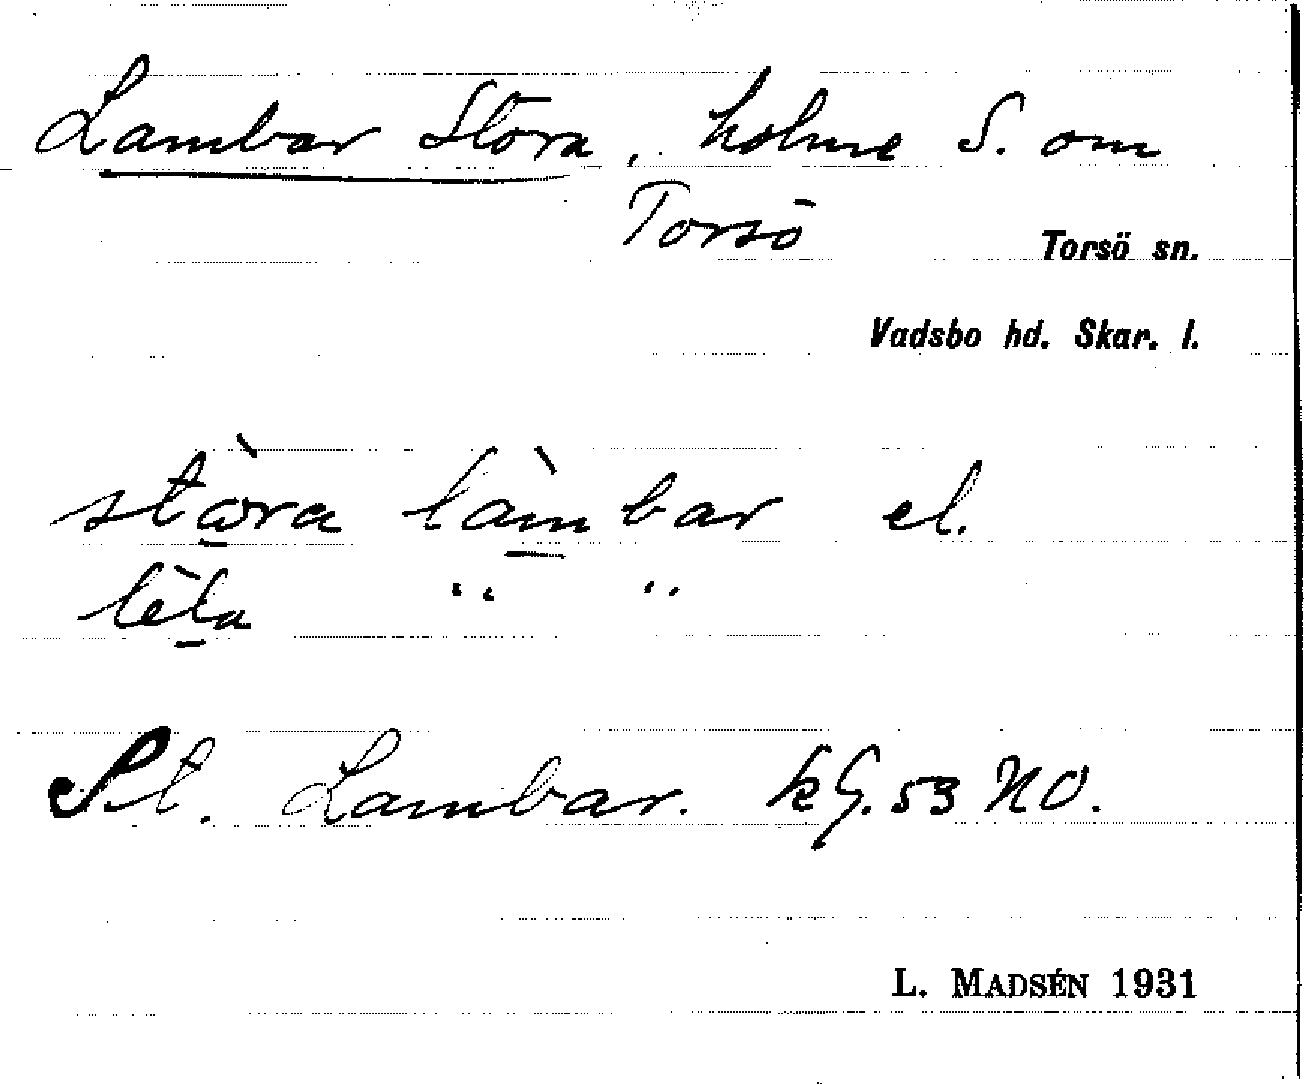 Lambar Stora, holme S. om
Torsö
Torsö sn.
Vadsbo hd. Skar. l.
stòra làmbar el.
lèta " "
St. Lambar. kG. 53 NO.
L. MADSÉN 1931